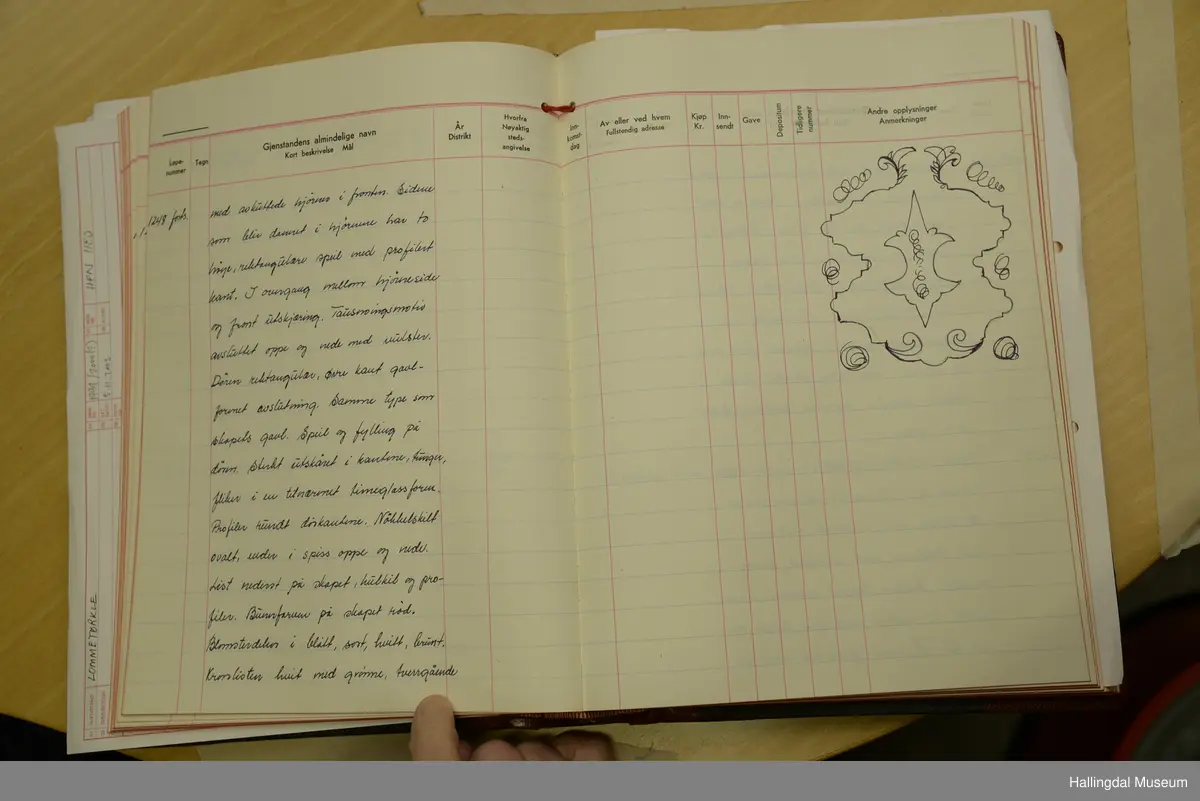 Løpe-
nummer
Tegn
Gjenstandens almindelige navn
Kort beskrivelse Mål
År
Distrikt
Hvorfra
Nøyaktig
steds-
angivelse
Inn-
komst-
dag
Av eller ved hvem
Fullstendig adresse
Kjøp
Kr.
Inn-
sendt
Gave
Depositum
Tidligere
nummer
Andre opplysninger
Anmerkninger
1248 forts.
med avkuttede hjørner i fronten. Sidene
som blir dannet i hjørnene har to
lange, rektangulære speil med profilert
kant. I overgang mellom hjørneside
og front utskjæring. Tausnoingsmotiv
avsluttet oppe og nede med vulster.
Døren rektangulær, øvre kant gavl-
formet avslutning. Samme type som
skapets gavl. Speil og fylling på
døren. Sterkt utskåret i kantene, tunger,
fliker i en tilnærmet timeglassform.
Profiler rundt dørkantene. Nøkkelskilt
ovalt, ender i spiss oppe og nede.
List nederst på skapet, hulkil og pro-
filer. Bunnfarven på skapet rød.
Blomsterdekor i blått, sort, hvitt, brunt.
Kronlisten hvit med grønne, tverrgående
LOMMETØRKLE
Hallingdal Museum